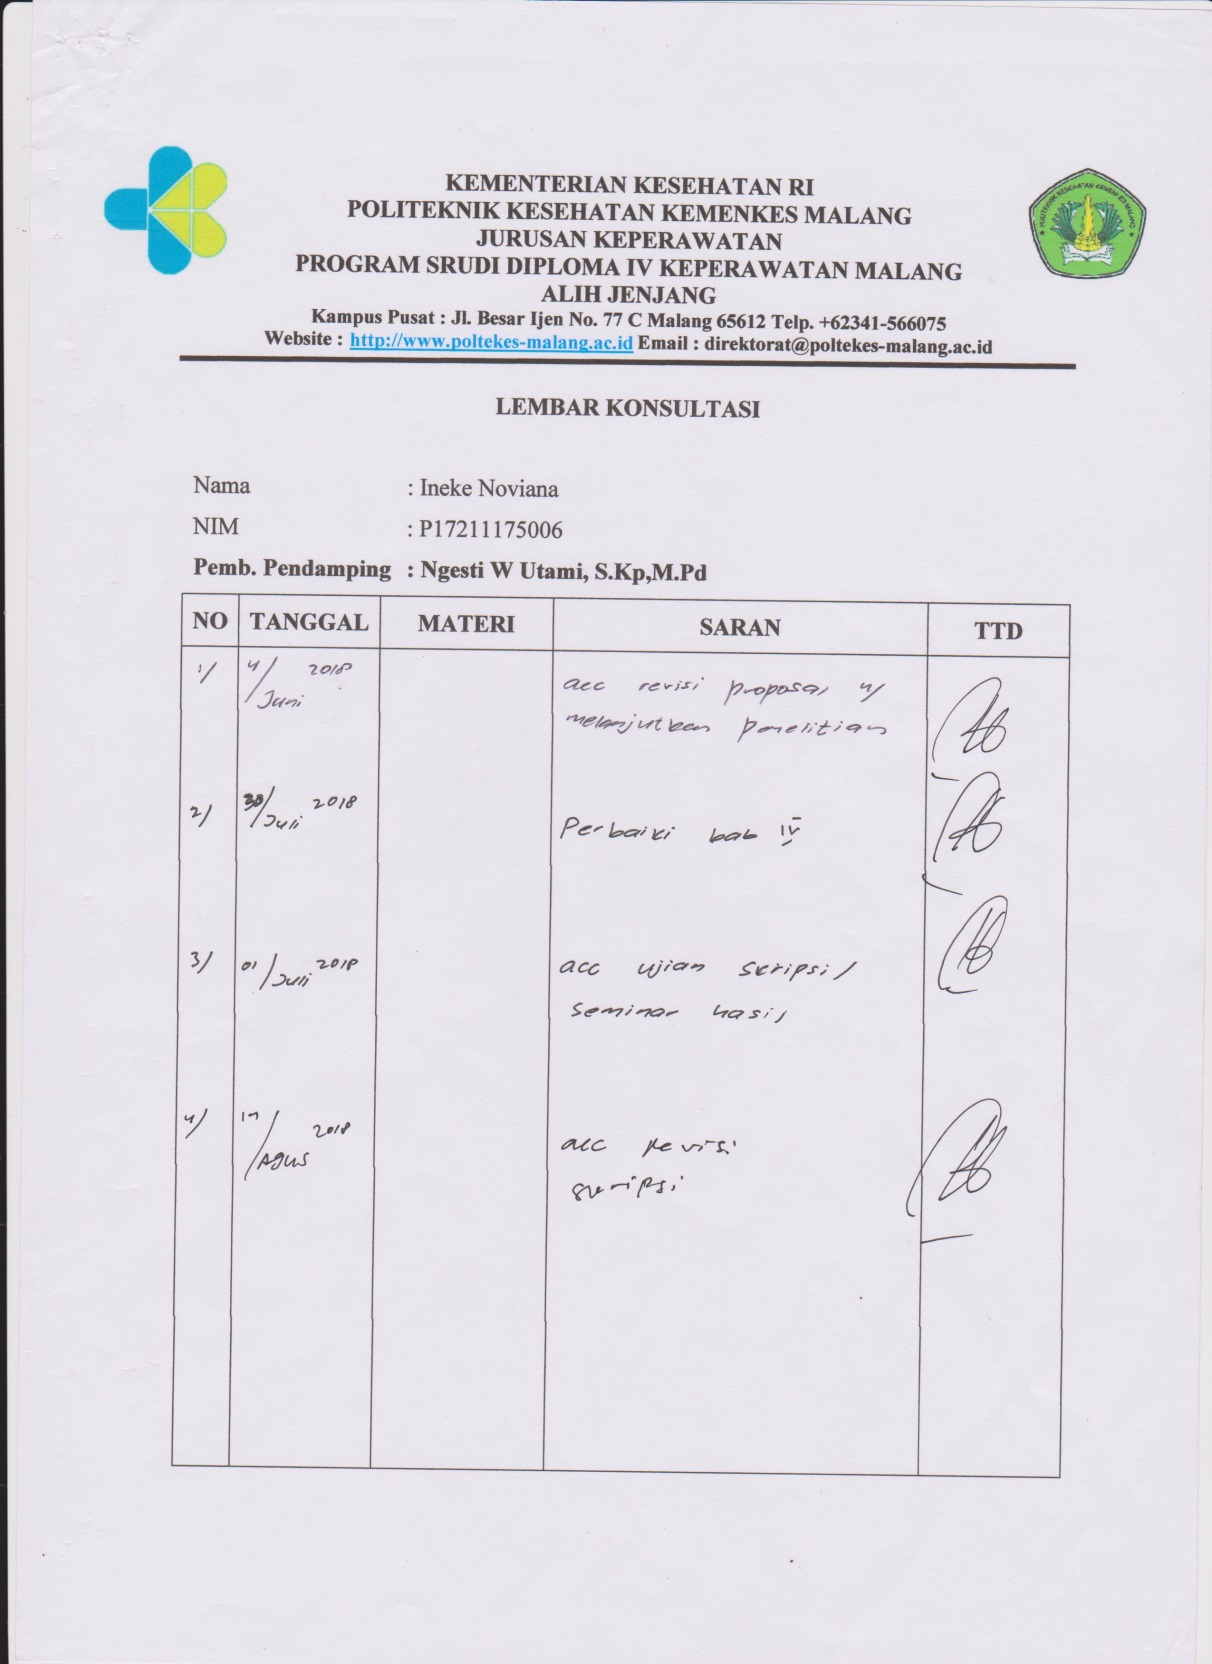 KEMENTERIAN KESEHATAN RI
POLITEKNIK KESEHATAN KEMENKES MALANG
JURUSAN KEPERAWATAN
PROGRAM SRUDI DIPLOMA IV KEPERAWATAN MALANG
ALIH JENJANG
Kampus Pusat : Jl. Besar Ijen No. 77 C Malang 65612 Telp. +62341-566075
Website : http://www.poltekes-malang.ac.id Email : direktorat@poltekes-malang.ac.id
POLITEKNIK KESEHATAN KEMENKES MALANG
LEMBAR KONSULTASI
Nama : Ineke Noviana
NIM : P17211175006
Pemb. Pendamping : Ngesti W Utami, S.Kp,M.Pd
NO TANGGAL MATERI SARAN TTD
1/ 4/Juni 2018 acc revisi proposal u/
melanjutkan penelitian
2/ 30/Juli 2018 Perbaiki bab IV
3/ 01/Juli 2018 acc ujian skripsi/
seminar hasil
4/ /Agus 2018 acc revisi
skripsi